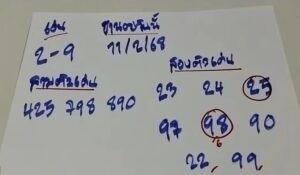 เด่น ฐานอยวันนี้
2-9 11/2/68
สามตัวเด่น สองตัวเด่น
425 798 890 23 24 25
97 98 90
6
22, 99,